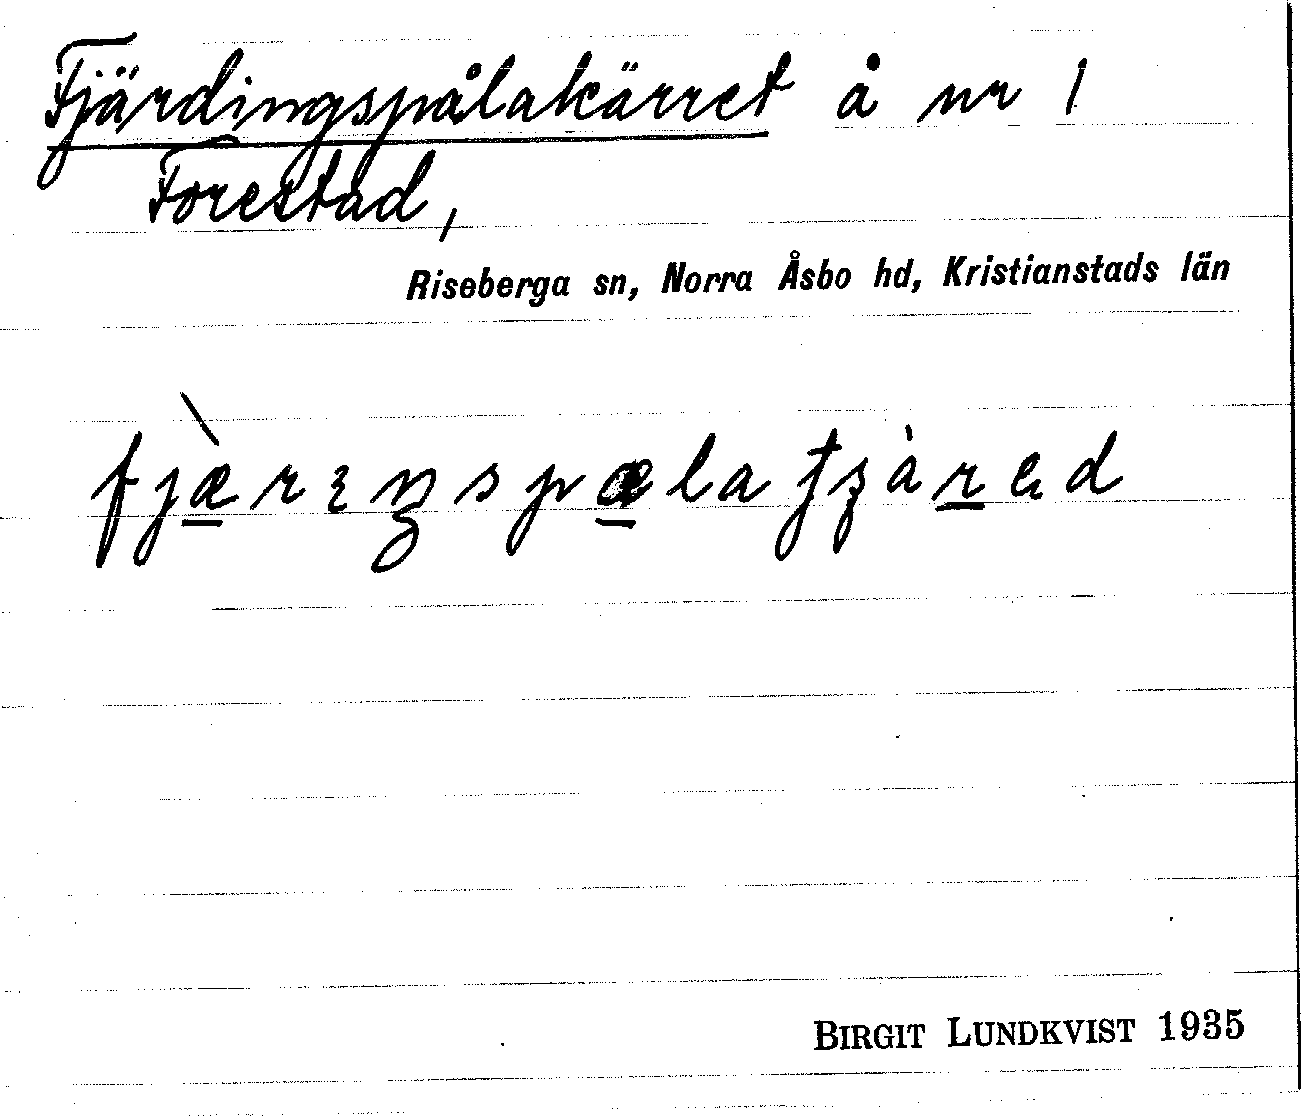 Fjärdingspålakärret å nr 1
Forestad,
Riseberga sn, Norra Åsbo hd, Kristianstads län
BIRGIT LUNDKVIST 1935